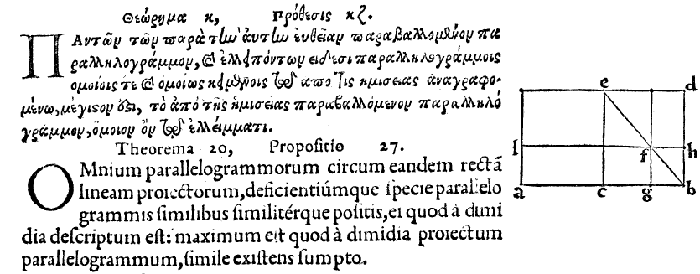 Θεώρημα κ, Πρόθεσις κζ.
ΠΑντῶν τῶν παρὰ τὴν αὐτὴν εὐθεῖαν παραβαλλομένων πα
ραλληλογράμμων, καὶ ἐλλειπόντων εἴδεσι παραλληλογράμμοις
ὁμοίοις τε καὶ ὁμοίως κειμένοις τῷ ἀπὸ τῆς ἡμισείας ἀναγραφο-
μένῳ, μέγιστόν ἐστι, τὸ ἀπὸ τῆς ἡμισείας παραβαλλόμενον παραλληλό
γραμμον, ὅμοιον ὂν τῷ ἐλλείμματι.
Theorema 20, Propositio 27.
OMnium parallelogrammorum circum eandem rectā
lineam proiectorum, deficientiúmque specie parallelo
grammis similibus similitérque positis, ei quod à dimi
dia descriptum est: maximum est quod à dimidia proiectum
parallelogrammum, simile existens sumpto.
e d
l f h
a c g b